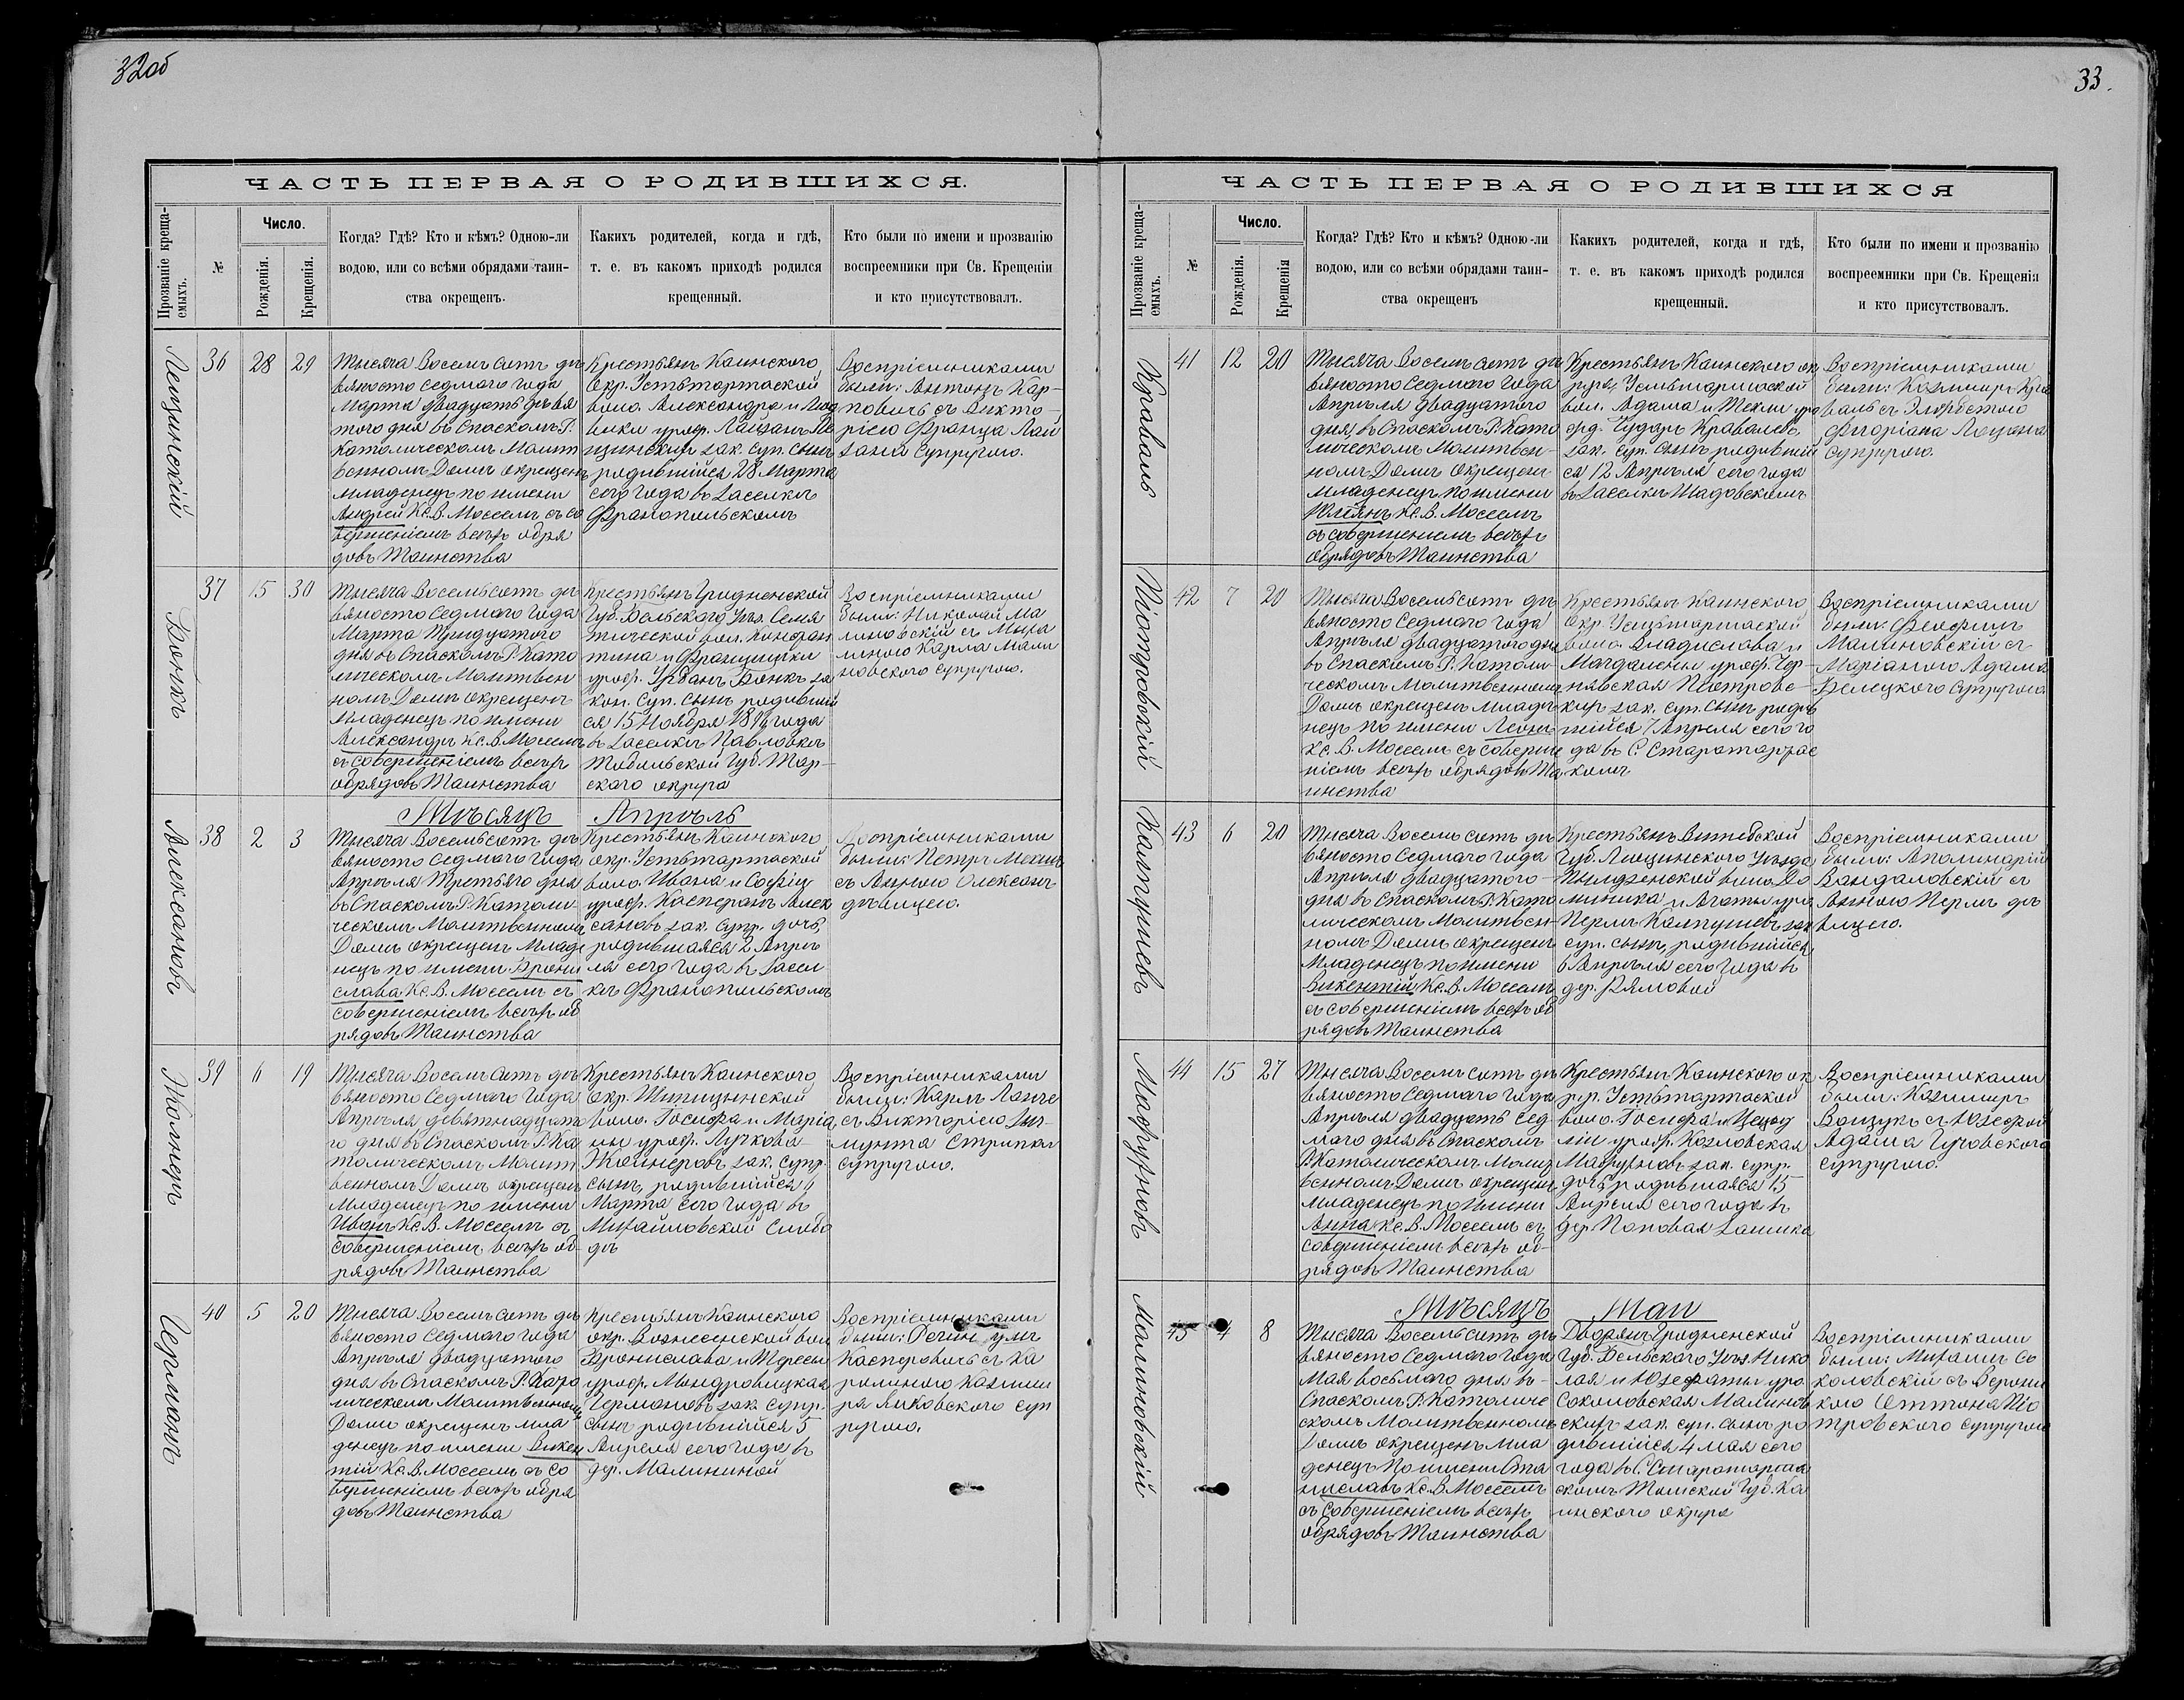 32об
ЧАСТЬ ПЕРВАЯ О РОДИВШИХСЯ.
Прозваніе креща-
емыхъ.
№
Число.
Рожденія.
Крещенія.
Когда? Гдѣ? Кто и кѣмъ? Одною-ли
водою, или со всѣми обрядами таин-
ства окрещенъ.
Какихъ родителей, когда и гдѣ,
т. е. въ какомъ приходѣ родился
крещенный.
Кто были по имени и прозванію
воспреемники при Св. Крещеніи
и кто присутствовалъ.
Лещинскій
36 28 29
Тысяча Восемь сотъ де
вяносто Седмаго года
Марта двадцать девя
того дня въ Спаскомъ Р.
Католическомъ Молит
венномъ Домѣ окрещенъ
младенецъ по имени
Андрей Кс. В. Моссемъ съ со
вершеніемъ всѣхъ обря
довъ Таинства
Крестьянъ Каинского
Окр. Устьтартаской
воло. Александра и Люд
вики урож. Лайзанъ Ле
щинскихъ зак. суп. сынъ
родившійся 28 Марта
сего года въ заселкѣ
Франопольскомъ
Воспріемниками
были: Антонъ Кар-
повичъ съ Викто-
ріею Франца Лай
зана супругою.
Бонкъ
37 15 30
Тысяча Восемьсотъ де
вяносто Седмаго года
Марта Тридцатого
дня въ Спаскомъ Р. Като
лическомъ Молитвен
номъ Домѣ окрещенъ
младенецъ по имени
Александръ Кс. В. Моссемъ
съ совершеніемъ всѣхъ
обрядовъ Таинства
Крестьянъ Гродненской
Губ. Бѣльскаго Уѣз. Семя
тической вол. Констан
тина и Францишки
урож. Урбанъ Бонкъ за
кон. Суп. Сынъ родивший
ся 15 Ноября 1896 года
въ заселкѣ Павловкѣ
Тобольской Губ. Тар-
скаго округа
Воспріемниками
были: Николай Ма
линовскій съ Миха
линою Карла Мали
новского супругою.
Мѣсяцъ Апрѣль
Алексановъ
38 2 3
Тысяча Восемьсотъ де
вяносто Седмаго года
Апрѣля Третьяго дня
въ Спаскомъ Р. Католи
ческомъ Молитвенномъ
Домѣ окрещенъ Младе
нецъ по имени Брони
слава Кс. В. Моссемъ съ
совершеніемъ всѣхъ об
рядовъ Таинства
Крестьянъ Каинского
окр. Устьтартаской
воло. Ивана и Софіи
урож. Касперанъ Алек
сановъ зак. Супр. дочь,
родившаяся 2 Апрѣ
ля сего года въ засел
кѣ Франопольскомъ
Воспріемниками
были: Петръ
съ Анною Олексанъ
дѣвицею.
Жолнеръ
39 6 19
Тысяча Восемь сотъ де
вяносто Седмаго года
Апрѣля девятнадцата
го дня въ Спаскомъ Р. Ка
толическомъ Молит
венномъ Домѣ окрещенъ
Младенецъ по имени
Иванъ Кс. В. Моссемъ съ
совершеніемъ всѣхъ об-
рядовъ Таинства
Крестьянъ Каинского
Окр. Шипицынской
воло. Іосифа и Маріа
ны урож. Лучкова
Жолнеровъ зак. супр.
сынъ, родившійся 6
Марта сего года въ
Михайловской Слобо
дѣ
Воспріемниками
были: Карлъ
съ Викторіею Зиг-
мунта
супругою.
Германъ
40 5 20
Тысяча Восемь сотъ де
вяносто Седмаго года
Апрѣля двадцатого
дня въ Спаскомъ Р. Като
лическомъ Молитвенномъ
Домѣ окрещенъ мла
денецъ по имени Викен
тій Кс. В. Моссемъ съ со
вершеніемъ всѣхъ обря
довъ Таинства
Крестьянъ Каинского
окр. Вознесенской вол
Бронислава и Терезы
урож. Мондровицкая
Германовъ зак. супр.
сынъ родившійся 5
Апреля сего года въ
дер. Малининой
Воспріемниками
были:
Касперовичъ съ Ка
ролиною Казими
ра Янковского суп
ругою.
33.
ЧАСТЬ ПЕРВАЯ О РОДИВШИХСЯ
Прозваніе креща-
емыхъ.
№
Число.
Рожденія.
Крещенія
Когда? Гдѣ? Кто и кѣмъ? Одною-ли
водою, или со всѣми обрядами таин-
ства окрещенъ
Какихъ родителей, когда и гдѣ,
т. е. въ какомъ приходѣ родился
крещенный.
Кто были по имени и прозванію
воспреемники при Св. Крещенія
и кто присутствовалъ.
Кроваль
41 12 20
Тысяча Восемь сотъ де
вяносто Седмаго Года
Апрѣля двадцатого
дня, въ Спаскомъ Р. Като
лическомъ Молитвен-
номъ Домѣ окрещенъ
Младенецъ по имени
Юліянъ Кс. В. Моссемъ
съ совершеніемъ всѣхъ
обрядовъ Таинства
Крестьянъ Каинского ок
руга, Устьтартаской
вол. Адама и Теклы уро
жд. Кравалевъ,
зак. суп. Сынъ родивший
ся 12 Апрѣля сего года
въ заселкѣ Шадовскомъ
Воспріемниками
были: Казимиръ
валь съ
Флоріана
супругою.
Піотровскій
42 7 20
Тысяча Восемьсотъ де
вяносто Седмаго года
Апрѣля двадцатого дня
въ Спаскомъ Р. Католи
ческомъ Молитвенномъ
Домѣ окрещенъ младе
нецъ по имени Леонъ
Кс. В. Моссемъ съ соверше
ніемъ всѣхъ обрядовъ Та
инства
Крестьянъ Каинского
Окр. Устьтартаской
воло. Владислава и
Магдалены урож. Чер-
нявская Піотровс-
кихъ зак. суп. Сынъ родив
шійся 7 Апреля сего го
да въ С. Старотартас
комъ
Воспріемниками
были:
Малиновскій съ
Маріаною Адама
Белецкого супругою
Калпушевъ
43 6 20
Тысяча Восемь сотъ де
вяносто Седмаго года
Апрѣля двадцатого
дня въ Спаскомъ Р. Като
лическомъ Молитвен-
номъ Домѣ окрещенъ
младенецъ по имени
Викентій Кс. В. Моссемъ
съ совершеніемъ всѣхъ об
рядовъ Таинства
Крестьянъ Витебской
Губ. Люцинского Уѣзда
Пылдзенской воло. До
миника и Агаты уро
Перлъ Калпушевъ зак
суп. сынъ, родившійся
6 Апрѣля сего года въ
дер. Рямовой
Воспріемниками
были: Аполинарій
Вандаловскій съ
Анною Перлъ дѣ
вицею.
Мафурновъ
44 15 27
Тысяча Восемь сотъ де
вяносто Седмаго года
Апрѣля двадцать Сед-
маго дня въ Спаскомъ
Р. Католическомъ Молит
венномъ Домѣ окрещенъ
младенецъ по имени
Анна Кс. В. Моссемъ съ
совершеніемъ всѣхъ об-
рядовъ Таинства
Крестьянъ Каинского ок
руг. Устьтартаской
воло. Іосифа и Цецы
ліи урож. Козловская
Мафурновъ зак. супр.
дочь, родившаяся 15
Апреля сего года въ
дер. Поповая Заимка
Воспріемниками
были: Казимиръ
Ванцукъ съ Юзефой
Адама Гучовского
супругою.
Мѣсяцъ Май
Малиновскій
45 4 8
Тысяча Восемьсотъ де
вяносто Седмаго года
Мая восьмаго дня въ
Спаскомъ Р. Католиче
скомъ Молитвенномъ
Домѣ окрещенъ мла
денецъ по имени Ста
ниславъ Кс. В. Моссемъ
съ совершеніемъ всѣхъ
обрядовъ Таинства
Дворянъ Гродненской
Губ. Бельского Уѣз. Нико
лая и Юзефаты уро.
Соколовская Малинов
скихъ зак. суп. сынъ ро
дившійся 4 мая сего
года въ С. Старотартас
скомъ Томской Губ. Ка
инского округа
Воспріемниками
были: Михаилъ Со
коловскій съ Верони
кою Піо
тровского супругою